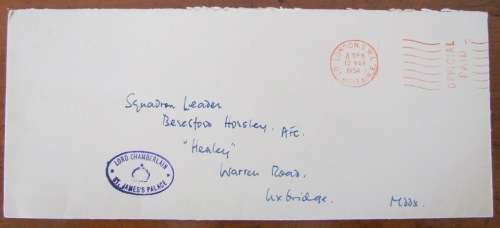 LONDON. S.W.1.
1954
OFFICIAL
PAID
Squadron Leader
Beresford Horsley. AFC.
"Healey"
Warren Road.
Uxbridge. Mddx.
LORD CHAMBERLAIN
ST. JAMES'S PALACE